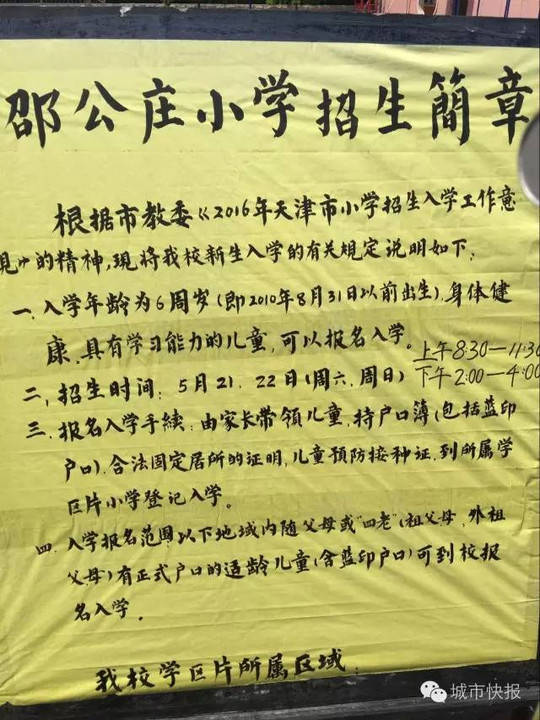 邵公庄小学招生簡章
根据市教委《2016年天津市小学招生入学工作意
見》的精神,現將我校新生入学的有关規定说明如下:
一.入学年龄为6周岁(即2010年8月31日以前出生),身体健
康.具有学习能力的儿童,可以报名入学。
上午8:30—11:30
二,招生时间:5月21.22日(周六.周日)
下午2:00—4:00
三.报名入学手續:由家长带领儿童,持户口簿(包括蓝印
户口),合法固定居所的证明,儿童预防接种证,到所属学
区片小学登记入学。
四.入学报名范围:以下地域内随父母或"四老"(祖父母,外祖
父母)有正式户口的适龄儿童(含蓝印户口)可到校报
名入学.
我校学区片所属区域:
城市快报